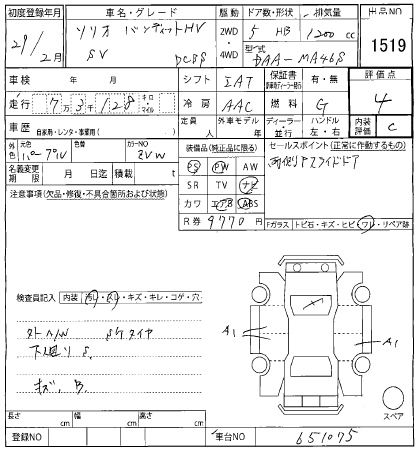 初度登録年月 車名・グレード 駆動 ドア数・形状 排気量 出品NO
29年 2月 ソリオ バンディットHV 2WD 4WD 5 HB 1200cc 1519
SV DCBS 型式 DAA-MA46S
車検 年 月 シフト IAT 保証書 有・無 評価点
走行 7万3千128 キロ マイル 冷房 AAC 燃料 G 4
車歴 自家用・レンタ・事業用( ) 定員 人 外車モデル 年 ディーラー・並行 ハンドル 左・右 内装評価 C
外色 元色 パープル 色替 カラーNO ZVW 装備品(純正品に限る) セールスポイント(正常に作動するもの)
両側Pスライドドア
名義変更期限 月 日迄 積載 t PS PW AW
注意事項(欠品・修復・不具合箇所および状態) SR TV ナビ
カワ エアB ABS
R券 9770円 Fガラス トビ石・キズ・ヒビ・ワレ・リペア跡
検査員記入 内装 汚レ・スレ・キズ・キレ・コゲ・穴
A1 A1
下廻りS.
キズ、B.
スペア
長さ cm 幅 cm 高さ cm
登録NO 車台NO 651075